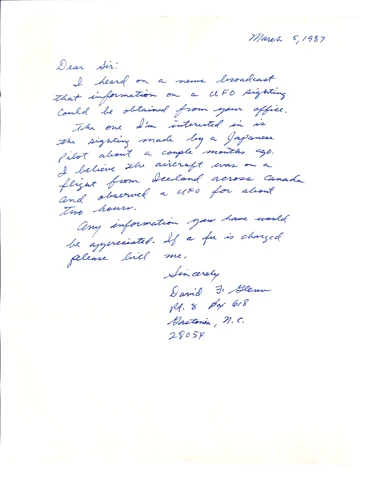 March 5, 1987
Dear Sir:
I heard on a news broadcast
that information on a UFO sighting
could be obtained from your office.
The one I'm interested in is
the sighting made by a Japanese
Pilot about a couple months ago.
I believe the aircraft was on a
flight from Iceland across Canada
and observed a UFO for about
two hours.
Any information you have would
be appreciated. If a fee is charged
please bill me.
Sincerely
David F. Glenn
Rt. 8 Box 618
Gastonia, N.C.
28054